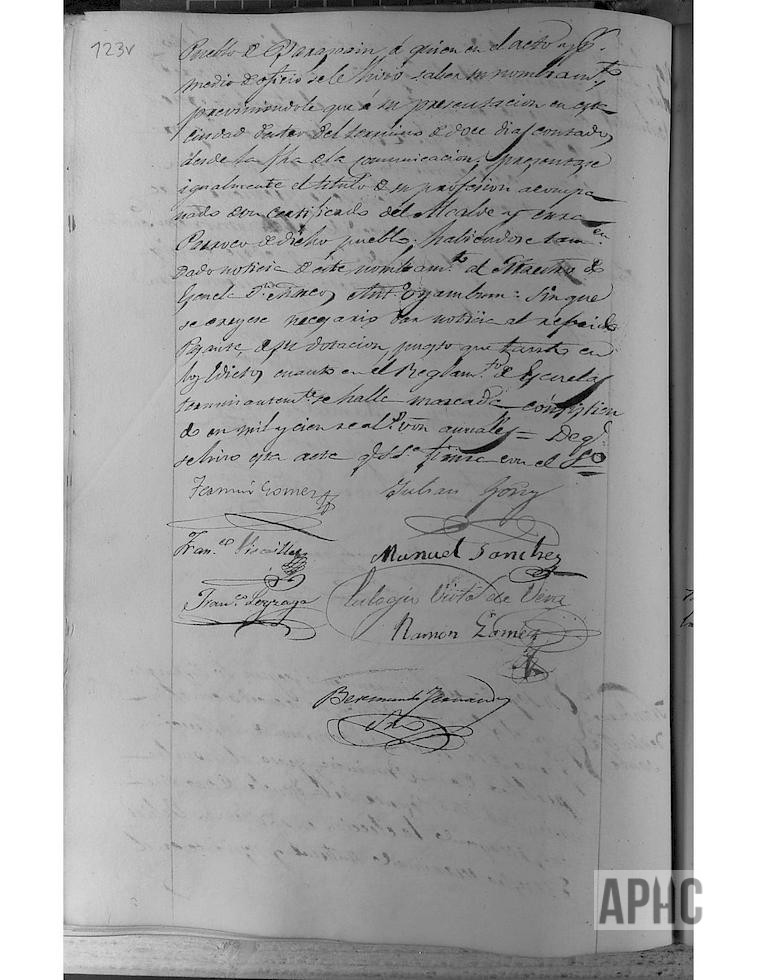 123v
Pueblo de Garazoain, á quien en el acto y pr.
medio de oficio se le hizo saber su nombramto.,
previniendole que a su presentacion en esta
ciudad dentro del termino de doce dias contados
desde la fha de la comunicacion, presentase
igualmente el titulo de su profesion acompa
nado de un certificado del Alcalde y cura
Parroco de dicho pueblo, habiendose tamen.
dado noticia de este nombramto. al Maestro de
Escuela Dn. Marcos Anto. Oyamburu: sin que
se creyese necesario dar noticia al referido
de su dotacion, puesto que tanto en
los Edictos cuanto en el Reglamto. de Escuelas
terminantemte. se halla marcada, consistien
do en mil y cien reals. von anuales = De ql.
se hizo esta acta qe. S.S.a firma con el So
Fermin Gomez
Julian Gorry
Franco. Viscaillas
Manuel Sanchez
Franco. Leyzaga
Eulogio Vistal de Vera
Ramon Gomez
Beremundo Fernandez
Srio
APHC